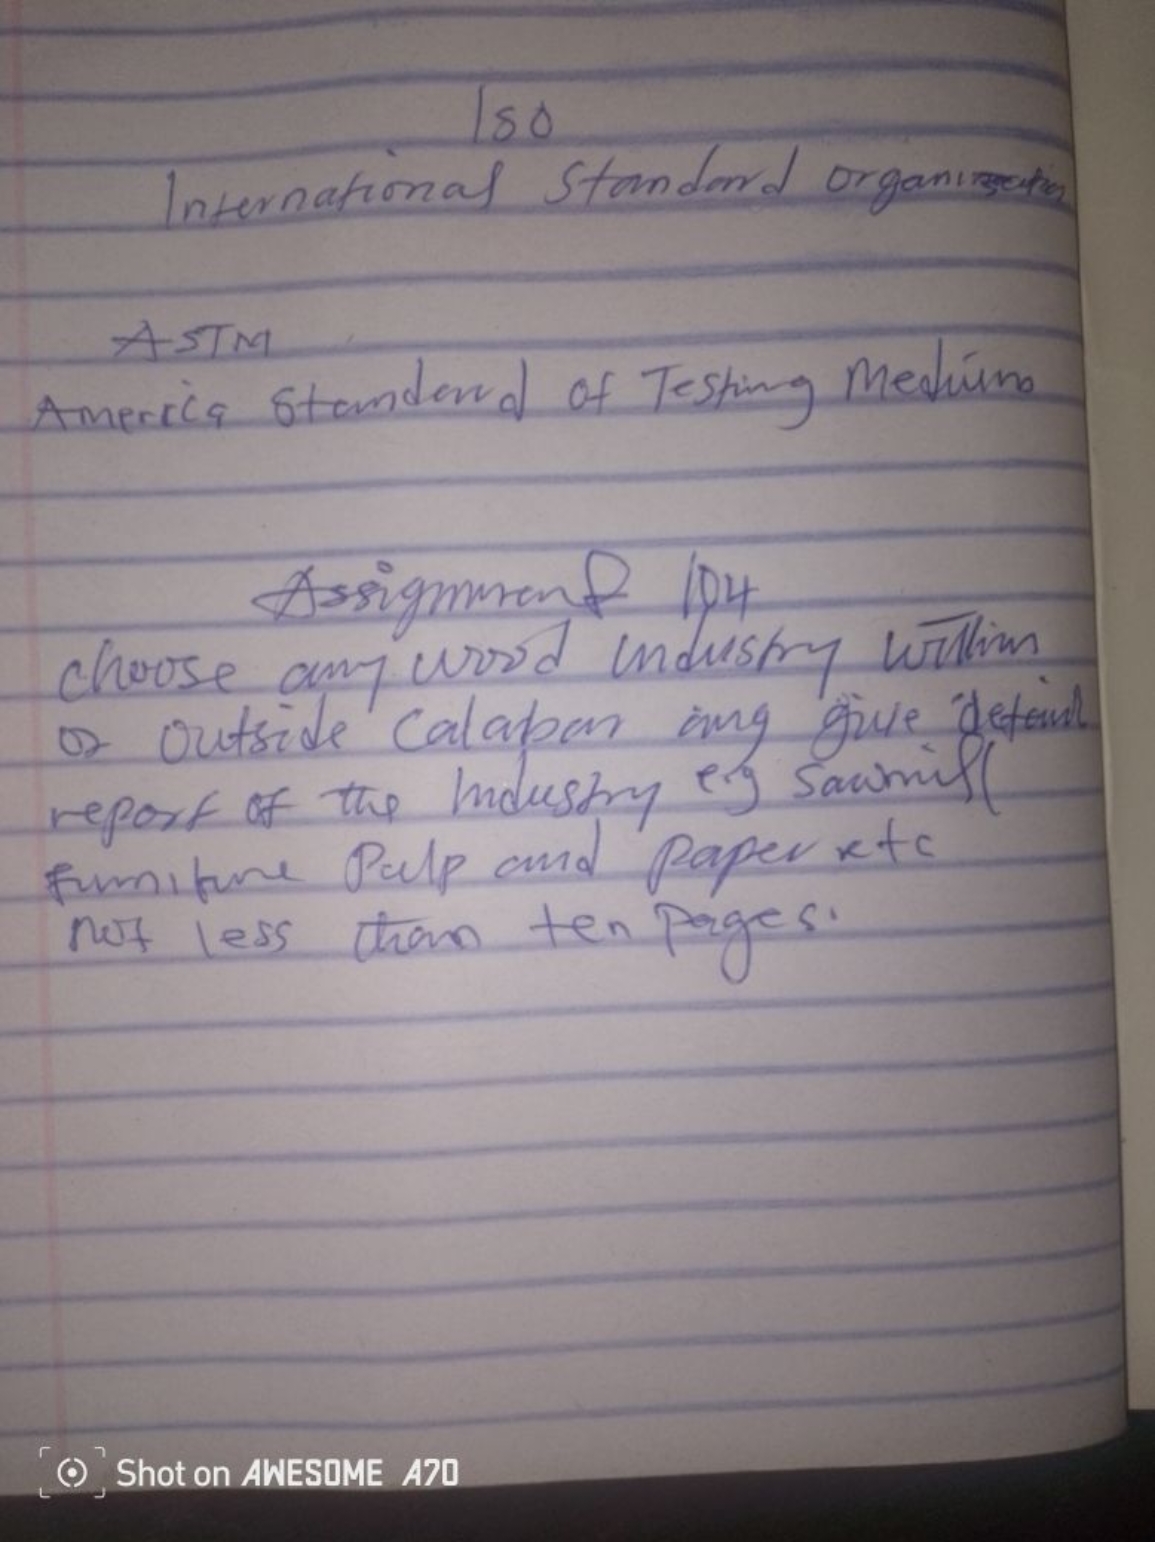 ISO
International Standard organization
ASTM
America Standard of Testing Medium
Assignment 104
choose any wood industry within
or outside Calabar any give detail
report of the Industry e.g Sawmill
furniture Pulp and paper etc
not less than ten pages.
Shot on AWESOME A70